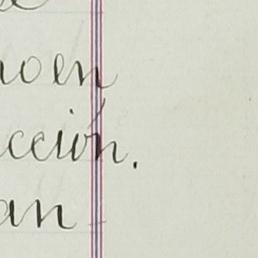 no en
cción.
an